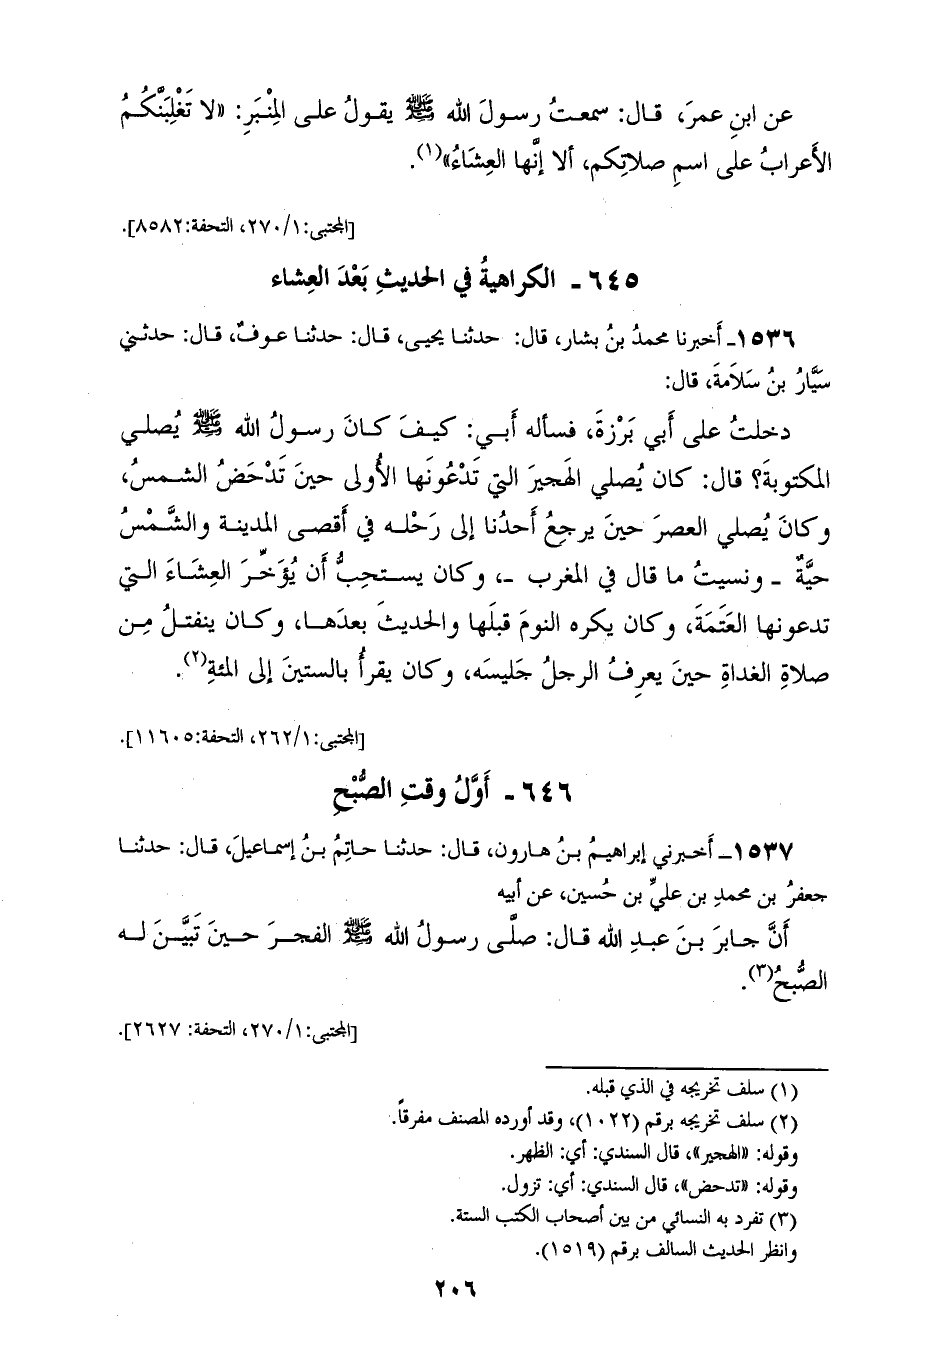 عن ابنِ عمرَ، قال: سمعتُ رسولَ الله ﷺ يقولُ على المِنْبَرِ: «لا تَغْلِبَنَّكُمُ
الأَعرابُ على اسمِ صلاتِكم، ألا إنَّها العِشَاءُ»(١).
[المجتبى:٢٧٠/١، التحفة:٨٥٨٢].
٦٤٥ - الكراهيةُ في الحديثِ بَعْدَ العِشاء
١٥٣٦- أَخبرنا محمدُ بنُ بشار، قال: حدثنا يحيى، قال: حدثنا عوفٌ، قال: حدثني
سَيَّارُ بنُ سَلَامةَ، قال:
دخلتُ على أَبي بَرْزةَ، فسأله أَبي: كيفَ كانَ رسولُ الله ﷺ يُصلي
المكتوبةَ؟ قال: كان يُصلي الهَجيرَ التي تَدْعُونَها الأُولى حينَ تَدْحَضُ الشمسُ،
وكانَ يُصلي العصرَ حينَ يرجعُ أَحدُنا إلى رَحْلِه في أَقصى المدينة والشَّمْسُ
حيَّةٌ - ونسيتُ ما قال في المغرب -، وكان يستحِبُّ أن يُؤَخِّرَ العِشَاءَ التي
تدعونها العَتَمَةَ، وكان يكره النومَ قبلَها والحديثَ بعدَها، وكان ينفتلُ مِن
صلاةِ الغداةِ حينَ يعرِفُ الرجلُ جَليسَه، وكان يقرأُ بالستينَ إلى المئةِ(٢).
[المجتبى:٢٦٢/١، التحفة:١١٦٠٥].
٦٤٦ - أَوَّلُ وقتِ الصُّبْحِ
١٥٣٧- أَخبرني إبراهيمُ بنُ هارون، قال: حدثنا حاتِمُ بنُ إسماعيلَ، قال: حدثنا
جعفرُ بن محمدِ بن عليِّ بن حُسين، عن أبيه
أَنَّ جابرَ بنَ عبدِ الله قال: صلَّى رسولُ الله ﷺ الفجرَ حينَ تَبيَّنَ له
الصُّبحُ(٣).
[المجتبى:٢٧٠/١، التحفة: ٢٦٢٧].
(١) سلف تخريجه في الذي قبله.
(٢) سلف تخريجه برقم (١٠٢٢)، وقد أورده المصنف مفرقاً.
وقوله: «الهجير»، قال السندي: أي: الظهر.
وقوله: «تدحض»، قال السندي: أي: تزول.
(٣) تفرد به النسائي من بين أصحاب الكتب الستة.
وانظر الحديث السالف برقم (١٥١٩).
٢٠٦